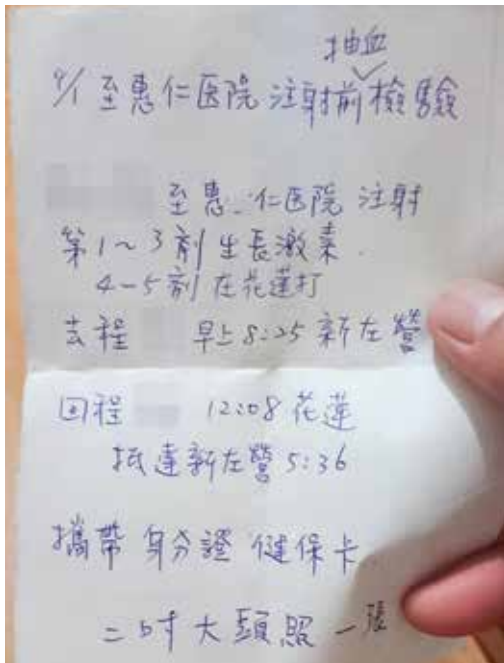 9/1 至惠仁医院 注射前抽血檢驗
至惠仁医院 注射
第1~3劑生長激素.
4-5劑在花蓮打
去程 早上8:25 新左營
回程 12:08 花蓮
抵達新左營 5:36
攜帶 身分證 健保卡
二吋大頭照一張